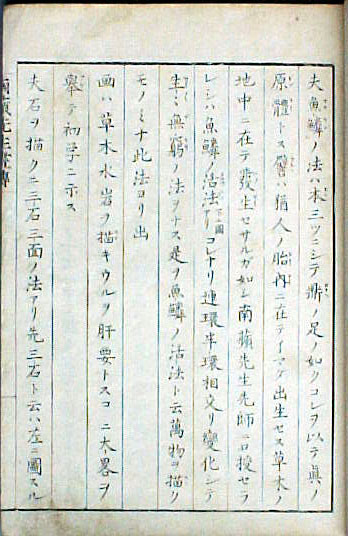 夫魚鱗ノ法ハ本三ツニシテ鼎ノ足ノ如クコレヲ以テ眞ノ
原體トス譬ハ猶人ノ胎內ニ在テイマタ出生セス草木ノ
地中ニ在テ發生セサルガ如シ南蘋先生先師ニ口授セラ
レシハ魚鱗ノ活法コレナリ連環半環相交リ變化シテ
生々無窮ノ法ヲナス是ヲ魚鱗ノ活法ト云萬物ヲ描ク
モノミナ此法ヨリ出
画ハ草木水岩ヲ描キウルヲ肝要トスコヽニ大畧ヲ
擧テ初学ニ示ス
夫石ヲ描クニ三石三面ノ法アリ先三石ト云ハ左ニ圖スル